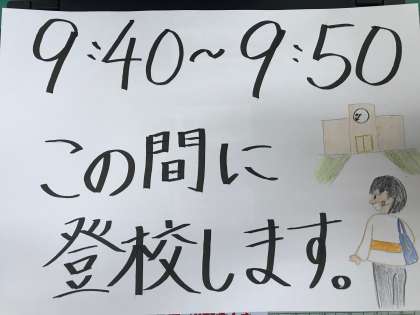 9:40~9:50
この間に
登校します。